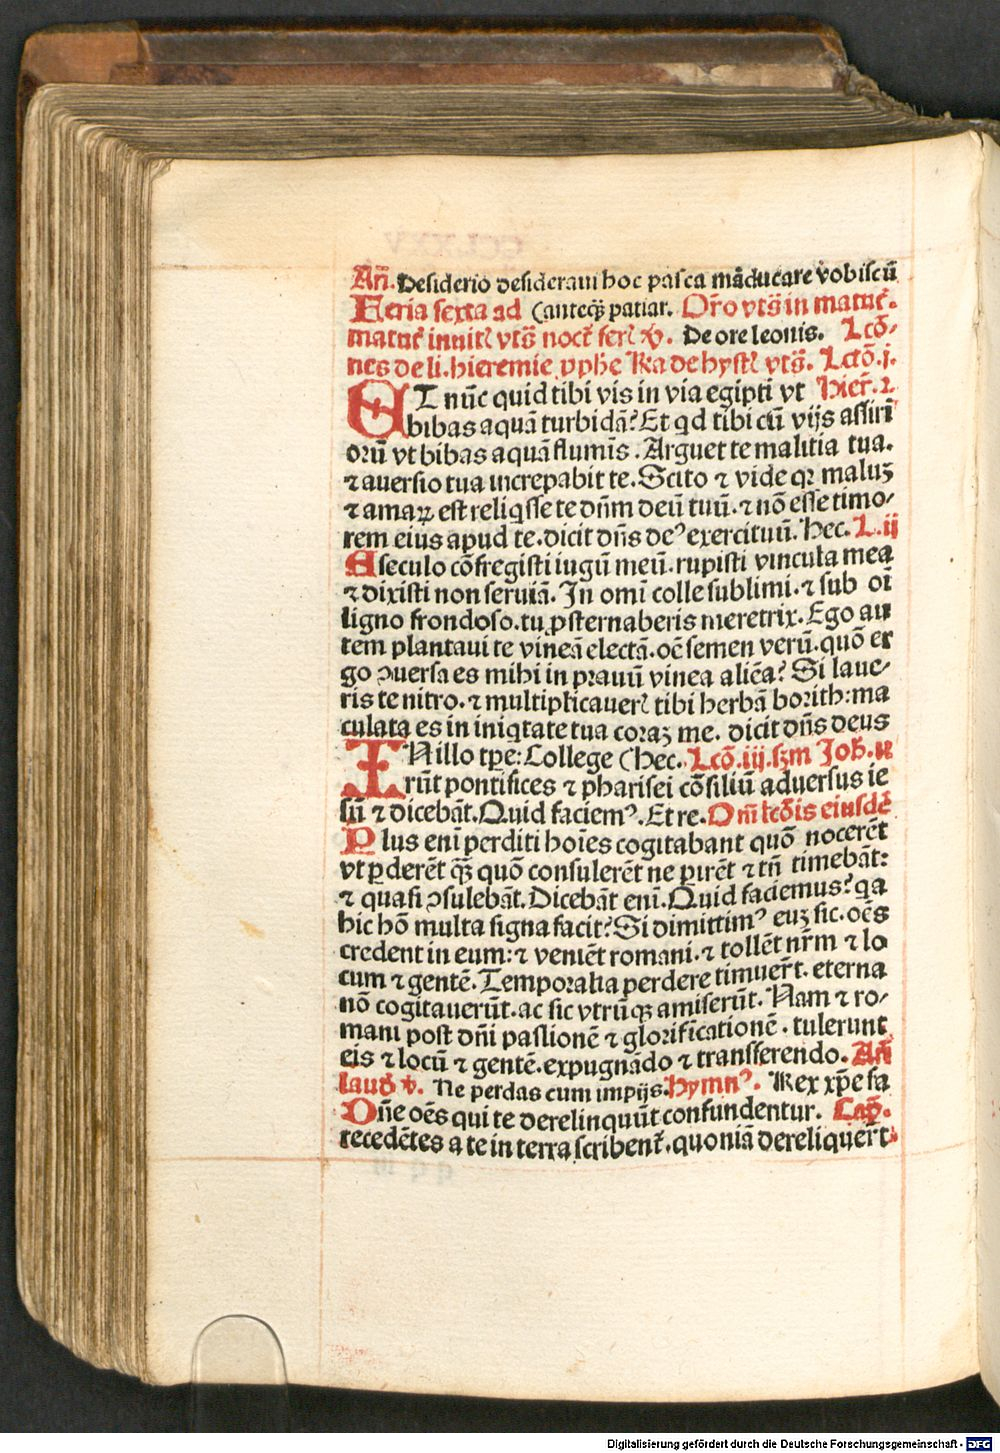 Añ. Desiderio desideraui hoc pasca mãducare vobiscũ
Feria sexta ad (anteq̃ patiar. Oro vts̃ in matut̃.
matut̃ inuit vts̃ noct̃ fer̃ v. De ore leonis. Lcõ-
nes de li. hieremie pphe Ra de hyst vts̃. Lctõ. j.
ET nũc quid tibi vis in via egipti vt hier̃. 2
bibas aquã turbidã? Et qd tibi cũ vijs assiri
orũ vt bibas aquã fluminis. Arguet te malitia tua.
⁊ auersio tua increpabit te. Scito ⁊ vide qꝛ maluꝫ
⁊ amaꝝ est reliqsse te dñm deũ tuũ. ⁊ nõ esse timo-
rem eius apud te. dicit dñs deꝰ exercituũ. hec. L. ij
A seculo cõfregisti iugũ meũ. rupisti vincula mea
⁊ dixisti non seruiã. In omi colle sublimi. ⁊ sub oĩ
ligno frondoso. tu ꝓsternaberis meretrix. Ego au
tem plantaui te vineã electã. oẽ semen verũ. quõ er
go ꝯuersa es mihi in prauũ vinea aliẽa? Si laue-
ris te nitro. ⁊ multiplicauer̃ tibi herbã borith: ma
culata es in iniqtate tua coraꝫ me. dicit dñs deus
IN illo tpe: College (hec. Lcõ. iij. sꝫm Joh̃. xi
rũt pontifices ⁊ pharisei cõsiliũ aduersus ie
sũ ⁊ dicebãt. Quid faciemꝰ. Et re. Om̃ lcõis eiusdẽ
Plus eni perditi hoĩes cogitabant quõ nocerẽt
vt ꝑderẽt q̃ꝫ quõ consulerẽt ne ꝑirẽt ⁊ tñ timebãt:
⁊ quasi ꝯsulebãt. Dicebãt eni. Quid faciemus? qa
hic hõ multa signa facit? Si dimittimꝰ euꝫ sic. oẽs
credent in eum: ⁊ veniẽt romani. ⁊ tollẽt nr̃m ⁊ lo
cum ⁊ gentẽ. Temporalia perdere timuer̃t. eterna
nõ cogitauerũt. ac sic vtrũqꝫ amiserũt. Nam ⁊ ro-
mani post dñi passionẽ ⁊ glorificationẽ. tulerunt
eis ⁊ locũ ⁊ gentẽ. expugnãdo ⁊ transferendo. Añ
laud̃ v. Ne perdas cum impijs. hymnꝰ. Rex xp̃e fa
Dñe oẽs qui te derelinquũt confundentur. Cap̃.
recedẽtes a te in terra scribent̃. quoniã dereliquer̃t